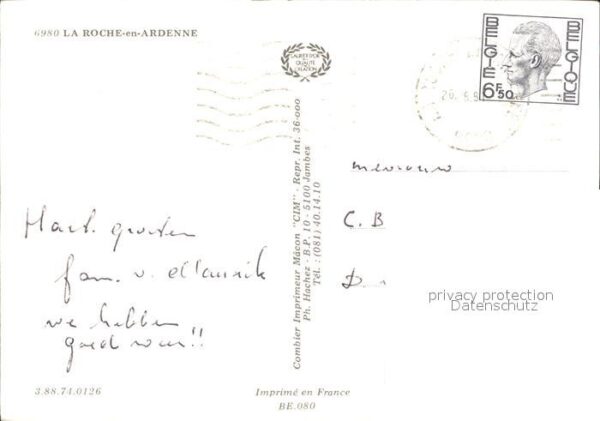 6980 LA ROCHE-en-ARDENNE
BELGIE
BELGIQUE
6F50
Hart. groeten
fam. v.
we hebben
goed weer!!
mevrouw
C. B
D
privacy protection
Datenschutz
Combier Imprimeur Mâcon "CIM" - Repr. Int. 36-000
Ph. Hachez : B.P. 10 - 5100 Jambes
Tél. : (081) 40.14.10
3.88.74.0126
Imprimé en France
BE.080